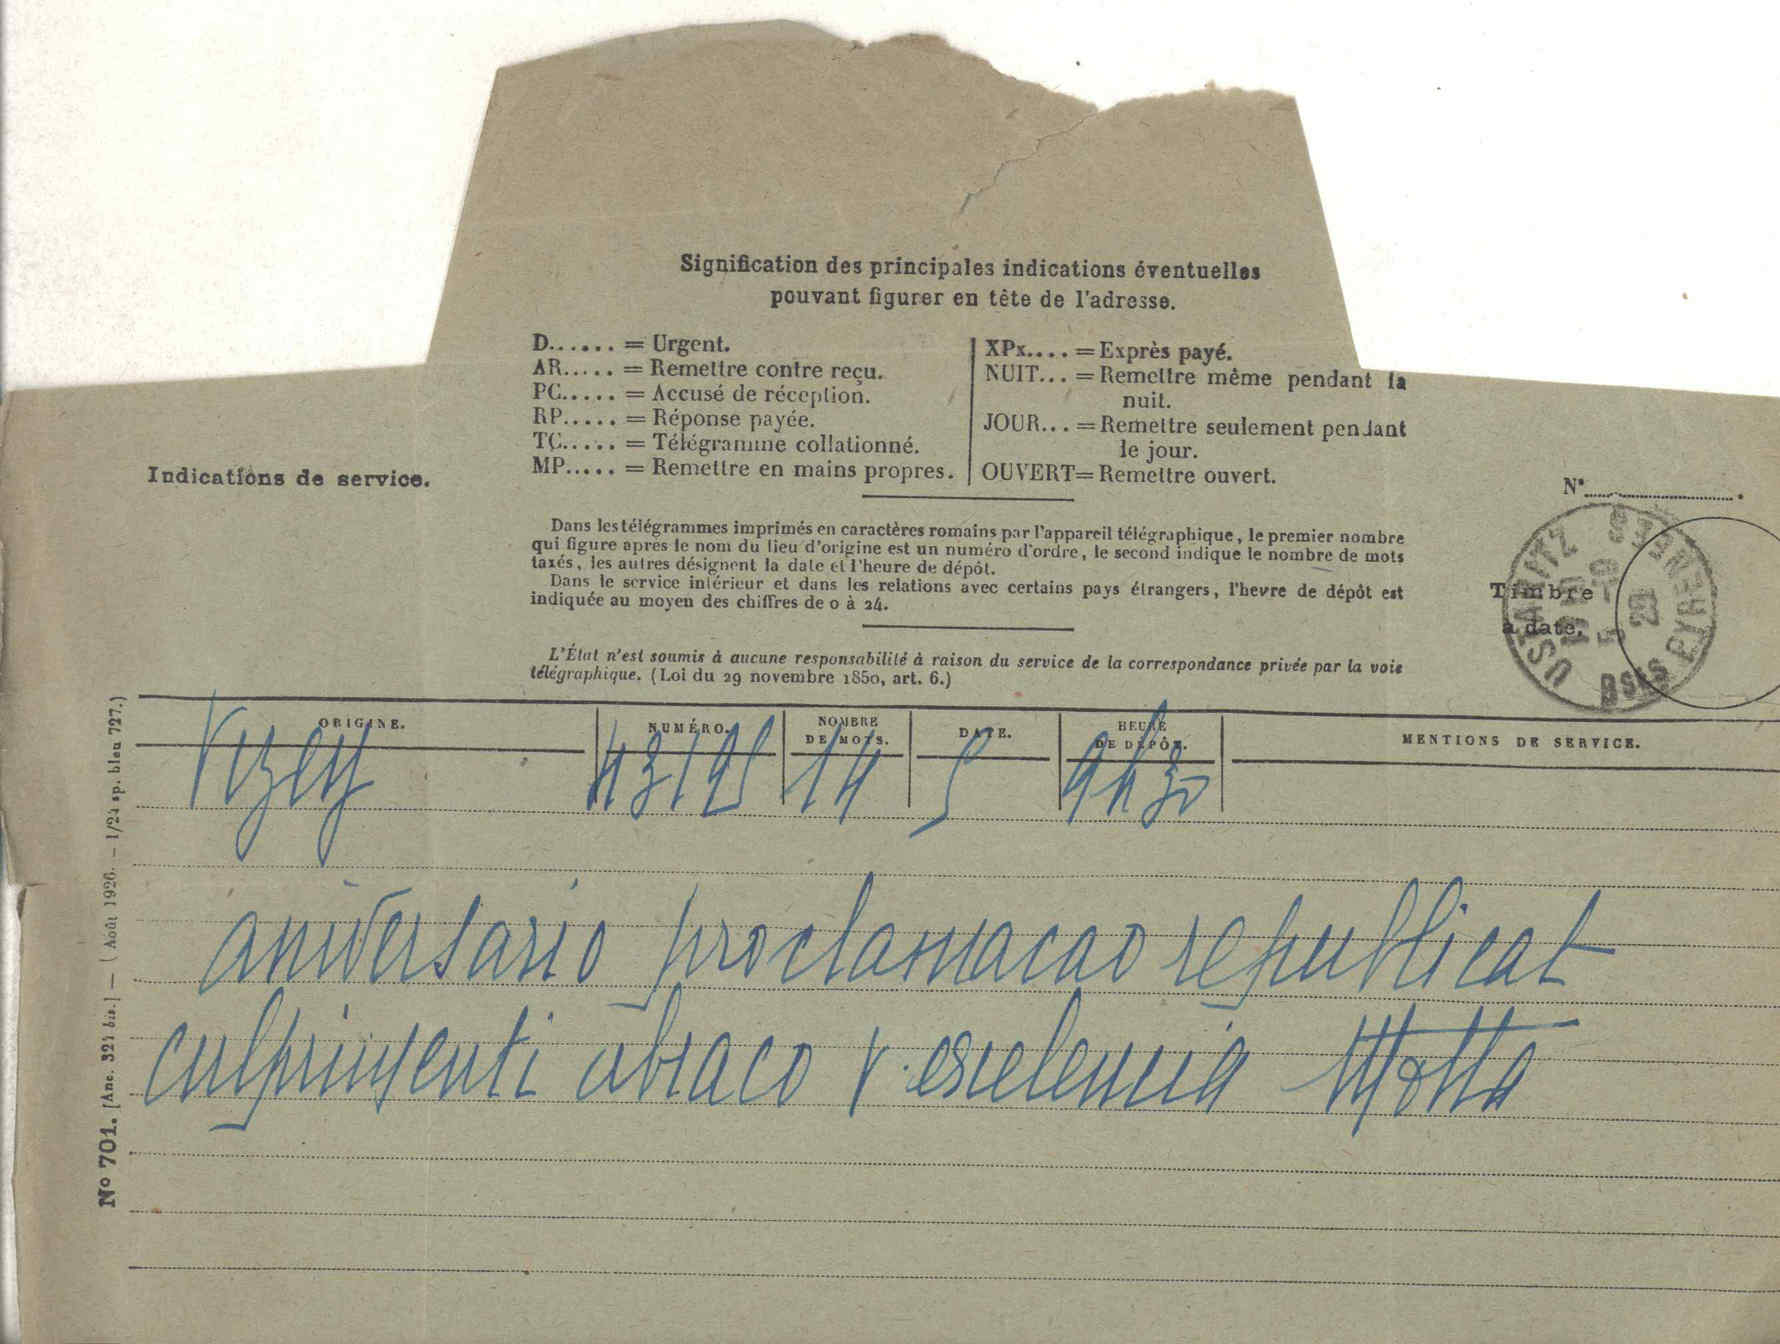 Signification des principales indications éventuelles
pouvant figurer en tête de l'adresse.
D...... = Urgent.
AR..... = Remettre contre reçu.
PC..... = Accusé de réception.
RP..... = Réponse payée.
TC..... = Télégramme collationné.
MP..... = Remettre en mains propres.
XPx.... = Exprès payé.
NUIT... = Remettre même pendant la
nuit.
JOUR... = Remettre seulement pendant
le jour.
OUVERT= Remettre ouvert.
Indications de service.
N°
Dans les télégrammes imprimés en caractères romains par l'appareil télégraphique, le premier nombre
qui figure après le nom du lieu d'origine est un numéro d'ordre, le second indique le nombre de mots
taxés, les autres désignent la date et l'heure de dépôt.
Dans le service intérieur et dans les relations avec certains pays étrangers, l'heure de dépôt est
indiquée au moyen des chiffres de 0 à 24.
Timbre
à date.
USTARITZ
5 -10
29
BSES PYRENEES
L'État n'est soumis à aucune responsabilité à raison du service de la correspondance privée par la voie
télégraphique. (Loi du 29 novembre 1850, art. 6.)
ORIGINE. NUMÉRO. NOMBRE DE MOTS. DATE. HEURE DE DÉPÔT. MENTIONS DE SERVICE.
14 5 9h30
aniversario proclamacao republica
abraco v. Motta
N° 701. [Anc. 321 bis.] — (Août 1926. — 1/24 sp. bleu 727.)